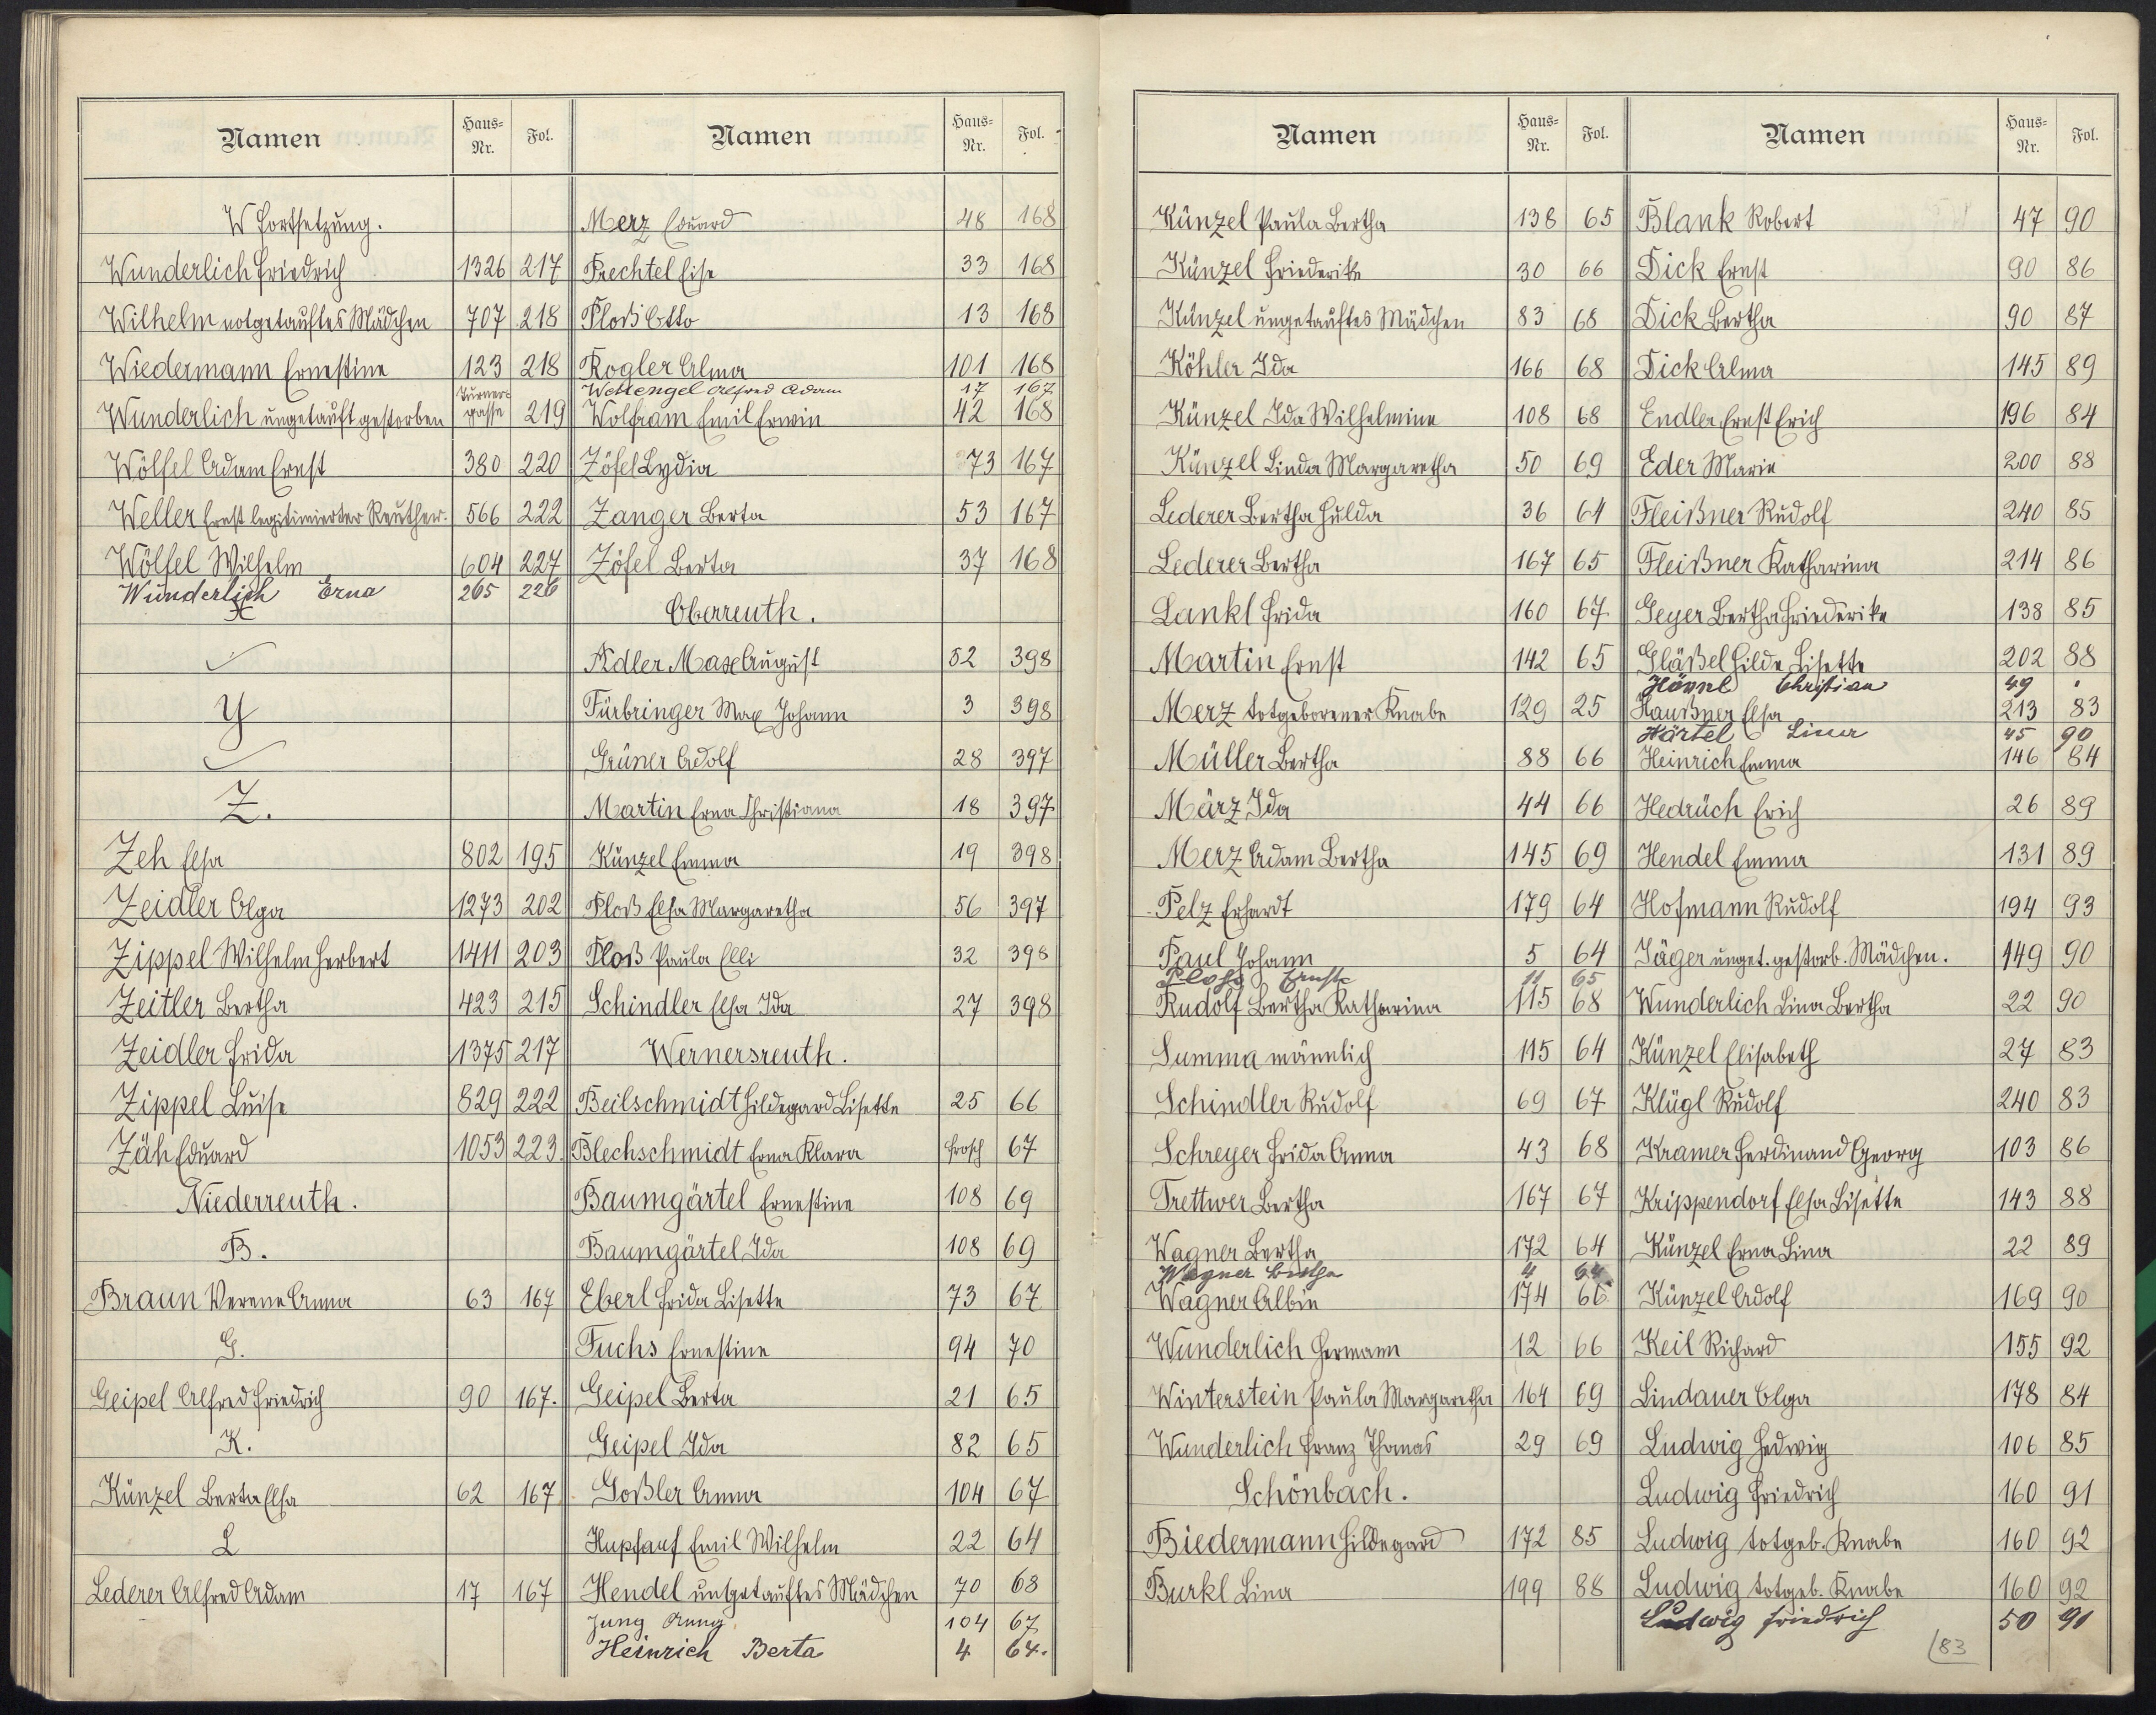 Namen Haus-Nr. Fol.
W Fortsetzung.
Wunderlich Friedrich 1326 217
Wilhelm notgetauftes Mädchen 707 218
Wiedermann Ernestine 123 218
Wunderlich ungetauft gestorben Turnergasse 219
Wölfel Adam Ernst 380 220
Weller Ernst legitimierter Reuther. 566 222
Wölfel Wilhelm 604 227
Wunderlich Erna 265 226
X
Y
Z.
Zeh Elsa 802 195
Zeidler Olga 1273 202
Zippel Wilhelm Herbert 1411 203
Zeitler Bertha 423 215
Zeidler Frida 1375 217
Zippel Luise 829 222
Zäh Eduard 1053 223.
Niederreuth.
B.
Braun Verene Anna 63 167
G.
Geipel Alfred Friedrich 90 167.
K.
Künzel Berta Elsa 62 167
L
Lederer Alfred Adam 17 167
Namen Haus-Nr. Fol.
Merz Eduard 48 168
Prechtel Elise 33 168
Ploß Otto 13 168
Rogler Alma 101 168
Wettengel Alfred Adam 17 167
Wolfram Emil Erwin 42 168
Zöfel Lydia 73 167
Zanger Berta 53 167
Zöfel Berta 37 168
Oberreuth.
Adler Max August 52 398
Fürbringer Max Johann 3 398
Grüner Adolf 28 397
Martin Erna Christiana 18 397
Künzel Emma 19 398
Ploß Elsa Margaretha 56 397
Ploß Paula Elli 32 398
Schindler Elsa Ida 27 398
Wernersreuth.
Beilschmidt Hildegard Lisette 25 66
Blechschmidt Erna Klara Frosch 67
Baumgärtel Ernestine 108 69
Baumgärtel Ida 108 69
Eberl Frida Lisette 73 67
Fuchs Ernestine 94 70
Geipel Berta 21 65
Geipel Ida 82 65
Goßler Anna 104 67
Hupfauf Emil Wilhelm 22 64
Hendel ungetauftes Mädchen 70 68
Jung 104 67
Heinrich Berta 4 64.
Namen Haus-Nr. Fol.
Künzel Paula Bertha 138 65
Künzel Friederike 30 66
Künzel ungetauftes Mädchen 83 68
Köhler Ida 166 68
Künzel Ida Wilhelmine 108 68
Künzel Linda Margaretha 50 69
Lederer Bertha Hulda 36 64
Lederer Bertha 167 65
Lankl Frida 160 67
Martin Ernst 142 65
Merz totgeborener Knabe 129 25
Müller Bertha 88 66
März Ida 44 66
Merz Adam Bertha 145 69
Pelz Erhardt 179 64
Paul Johann 5 64
Ploss Ernst 11 65
Rudolf Bertha Katharina 115 68
Summa männlich 115 64
Schindler Rudolf 69 67
Schreyer Frida Anna 43 68
Trettwer Bertha 167 67
Wagner Bertha 172 64
Wagner Bertha 4 64
Wagner Albin 174 66
Wunderlich Hermann 12 66
Winterstein Paula Margaretha 164 69
Wunderlich Franz Thomas 29 69
Schönbach.
Biedermann Hildegard 172 85
Burkl Lina 199 88
Namen Haus-Nr. Fol.
Blank Robert 47 90
Dick Ernst 90 86
Dick Bertha 90 87
Dick Alma 145 89
Endler Ernst Erich 196 84
Eder Marie 200 88
Fleißner Rudolf 240 85
Fleißner Katharina 214 86
Geyer Bertha Friederike 138 85
Gläßel Hilde Lisette 202 88
Christian 49
Haußner Elsa 213 83
Härtel 45 90
Heinrich Emma 146 84
Hedrüch Erich 26 89
Hendel Emma 131 89
Hofmann Rudolf 194 93
Jäger unget. gestorb. Mädchen. 149 90
Wunderlich Lina Bertha 22 90
Künzel Elisabeth 27 83
Klügl Rudolf 240 83
Kramer Ferdinand Georg 103 86
Krippendorf Elsa Lisette 143 88
Künzel Erna Lina 22 89
Künzel Adolf 169 90
Keil Richard 155 92
Lindauer Olga 178 84
Ludwig Hedwig 106 85
Ludwig Friedrich 160 91
Ludwig totgeb. Knabe 160 92
Ludwig totgeb. Knabe 160 92
Ludwig Friedrich 50 91
83